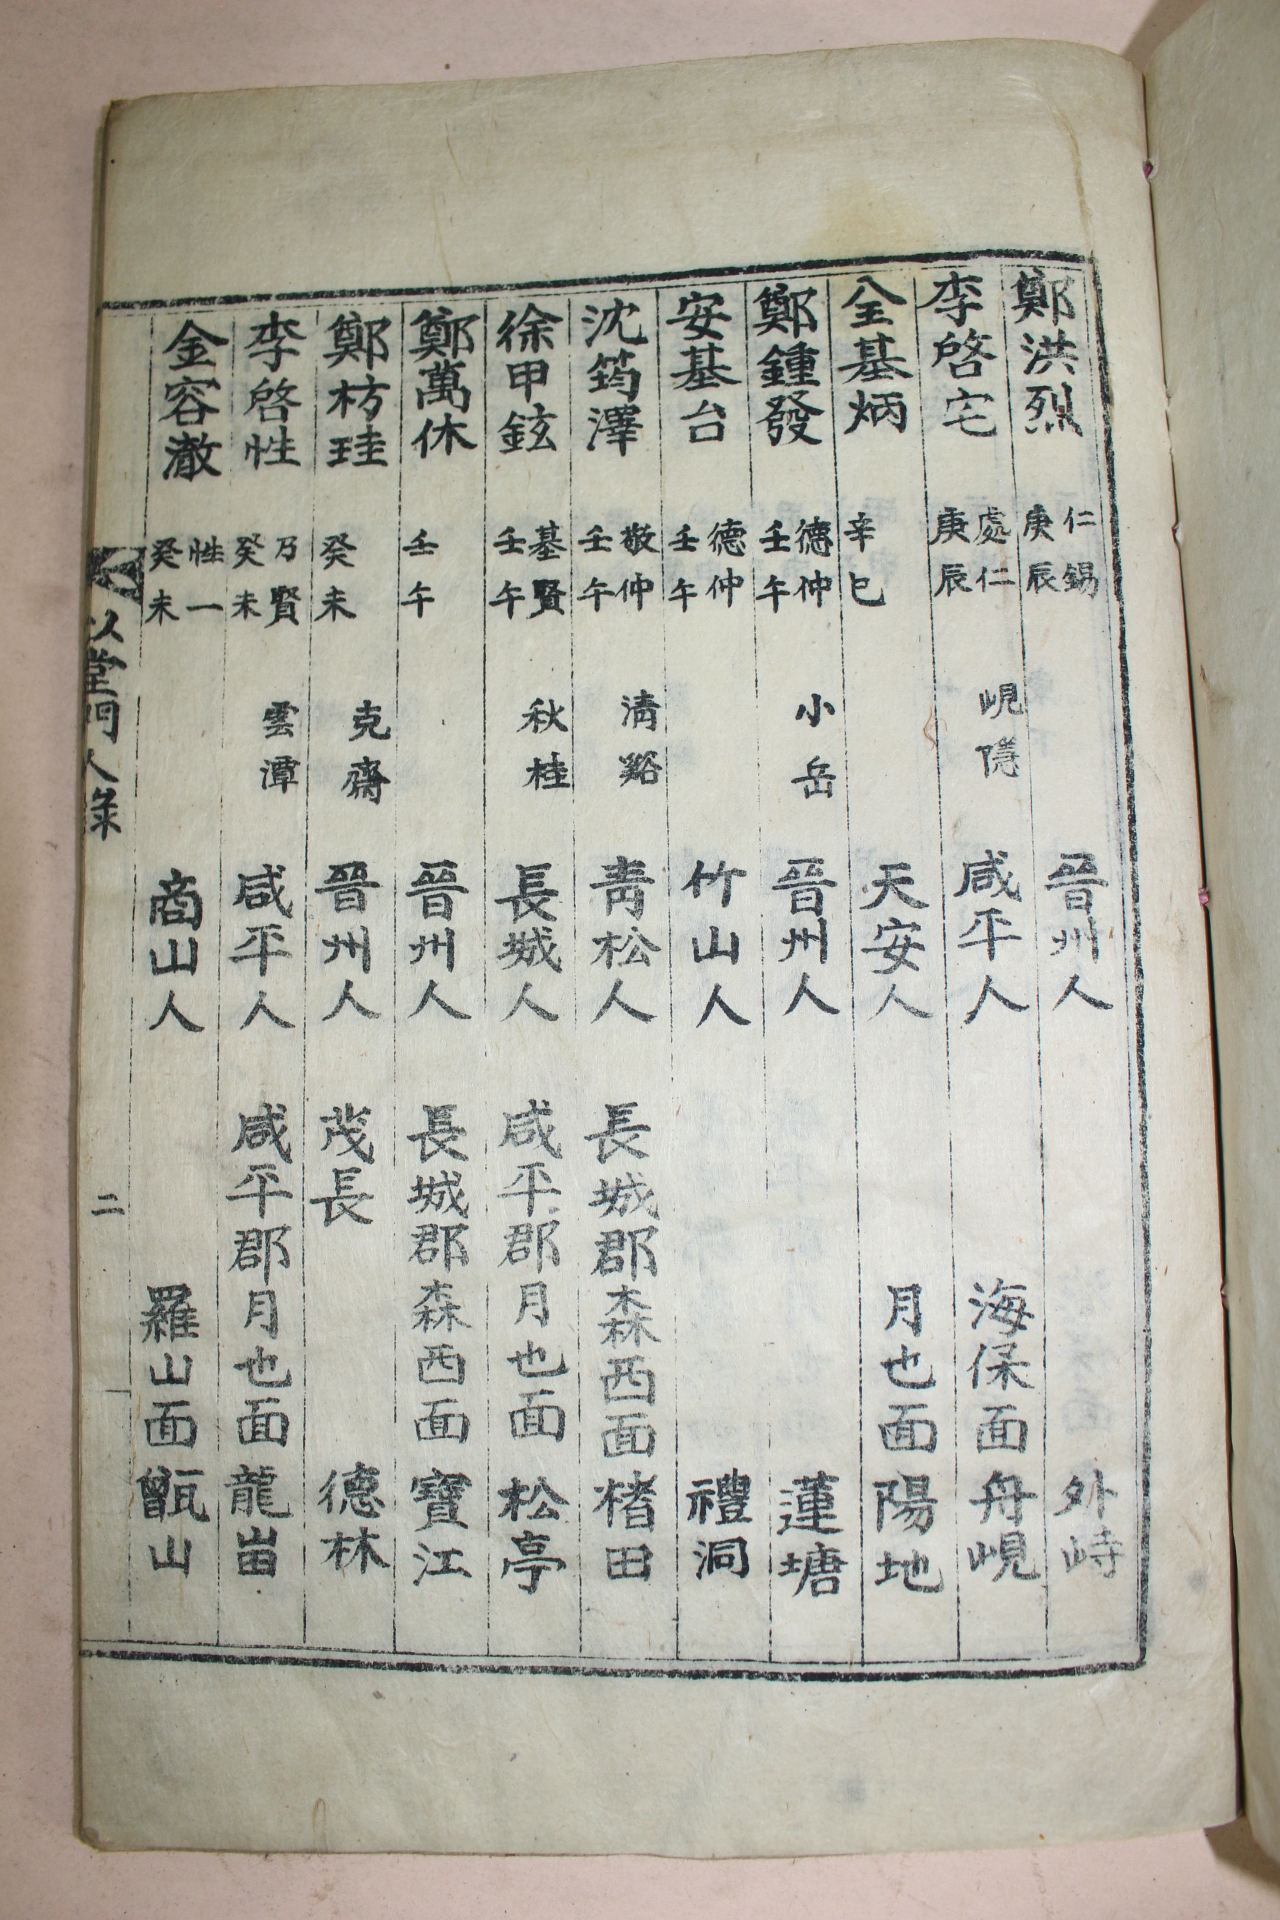 鄭洪烈 仁錫 庚辰 晉州人 外峙
李啓宅 處仁 庚辰 峴隱 咸平人 海保面 舟峴
全基炳 辛巳 天安人 月也面 陽地
鄭鍾發 德仲 壬午 小岳 晉州人 蓮塘
安基台 德仲 壬午 竹山人 禮洞
沈筠澤 敬仲 壬午 淸谿 靑松人 長城郡森西面 楮田
徐甲鉉 基賢 壬午 秋桂 長城人 咸平郡月也面 松亭
鄭萬休 壬午 晉州人 長城郡森西面 寶江
鄭枋珪 癸未 克齋 晉州人 茂長 德林
李啓性 乃賢 癸未 雲潭 咸平人 咸平郡月也面 龍嵒
金容澈 性一 癸未 商山人 羅山面 甑山
堂門人錄 二